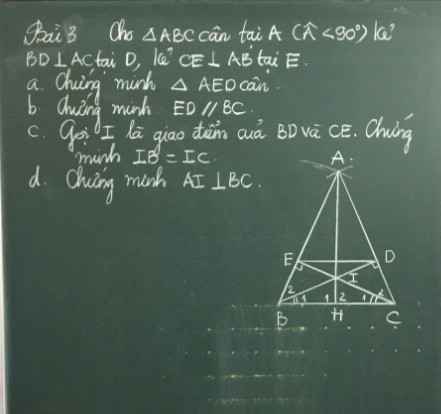 Bài 3 Cho △ABC cân tại A (Â < 90°) kẻ
BD ⊥ AC tại D, kẻ CE ⊥ AB tại E.
a. Chứng minh △ AED cân.
b. Chứng minh ED // BC.
c. Gọi I là giao điểm của BD và CE. Chứng
minh IB = IC.
d. Chứng minh AI ⊥ BC.
A
E D
I
2 1 1 2 1 2
B H C